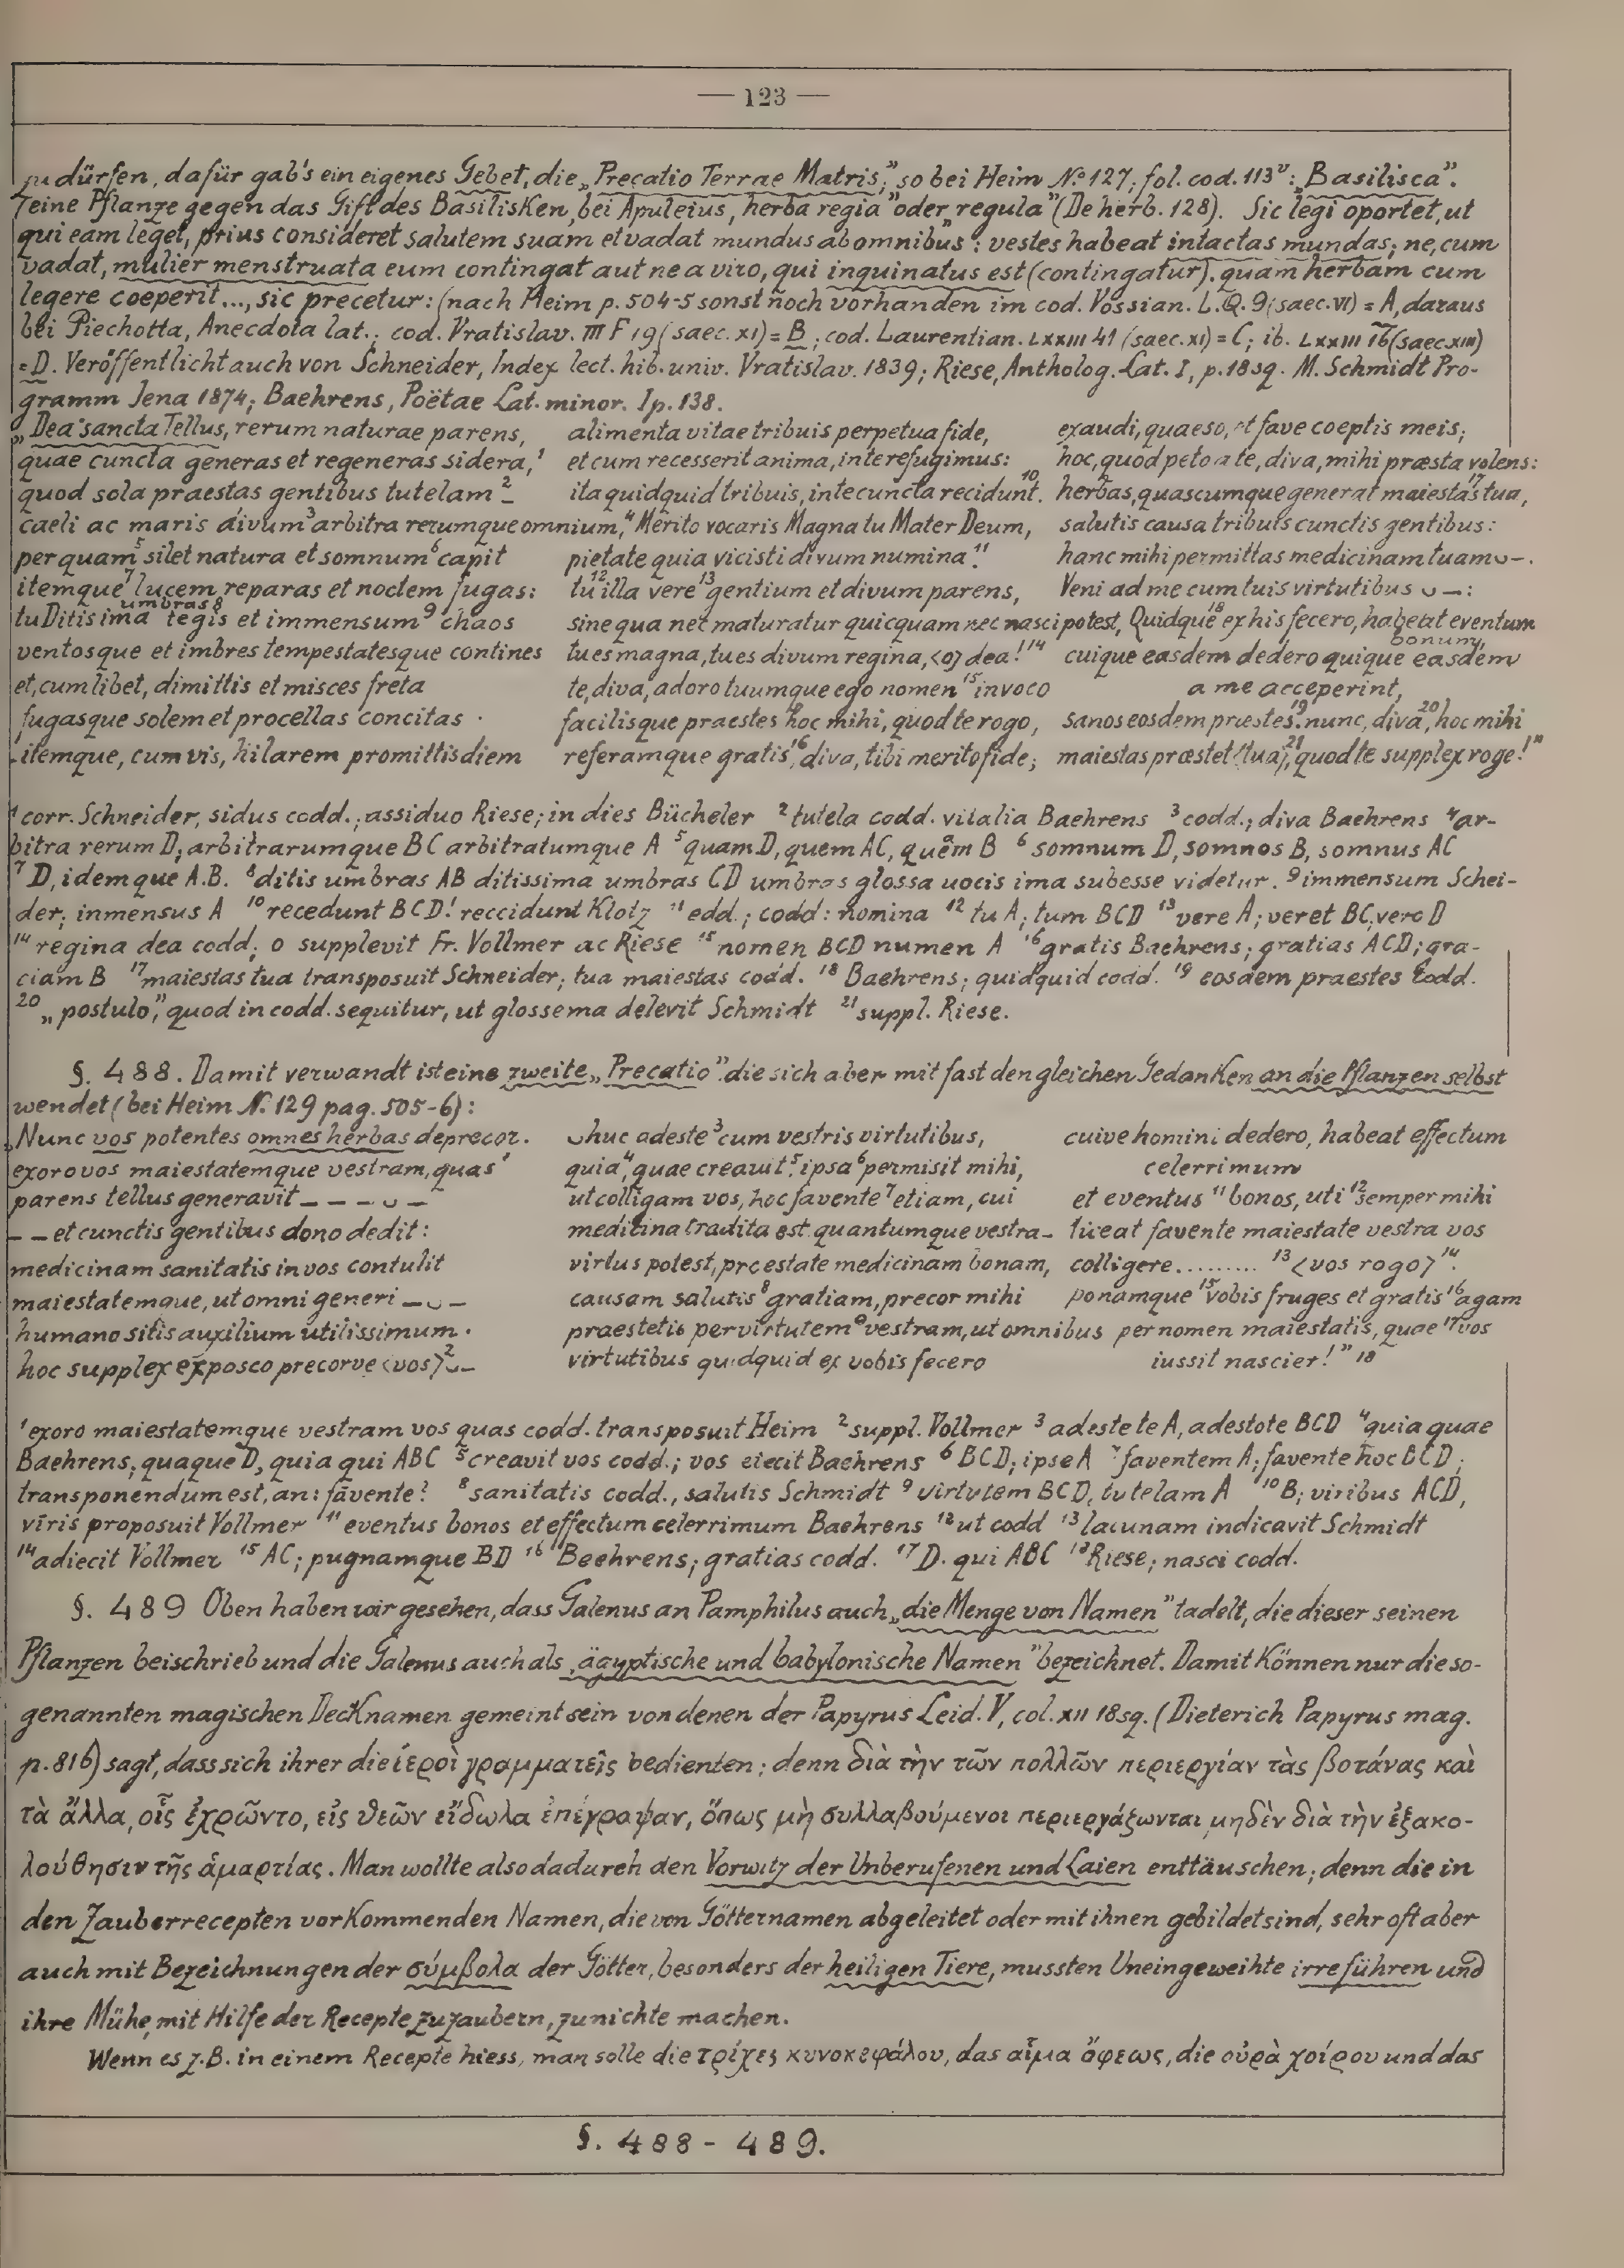 — 123 —
zu dürfen, dafür gab's ein eigenes Gebet, die „Precatio Terrae Matris," so bei Heim No 127, fol. cod. 113v: „Basilisca".
eine Pflanze gegen das Gift des Basilisken, bei Apuleius „herba regia" oder „regula" (De herb. 128). Sic legi oportet, ut
qui eam leget, prius consideret salutem suam et vadat mundus ab omnibus: vestes habeat intactas mundas; ne, cum
vadat, mulier menstruata eum contingat aut ne a viro, qui inquinatus est (contingatur). quam herbam cum
legere coeperit..., sic precetur: (nach Heim p. 504-5 sonst noch vorhanden im cod. Vossian. L. Q. 9 (saec. VI) = A, daraus
bei Piechotta, Anecdota lat.; cod. Vratislav. III F 19 (saec. XI) = B; cod. Laurentian. LXXIII 41 (saec. XI) = C; ib. LXXIII 16 (saec XIII)
= D. Veröffentlicht auch von Schneider, Index lect. hib. univ. Vratislav. 1839; Riese, Antholog. Lat. I, p. 18 sq. M. Schmidt Pro-
gramm Jena 1874; Baehrens, Poëtae Lat. minor. I p. 138.
„Dea sancta Tellus, rerum naturae parens,
quae cuncta generas et regeneras sidera,¹
quod sola praestas gentibus tutelam² –
caeli ac maris divum³ arbitra rerumque omnium,⁴
per quam⁵ silet natura et somnum⁶ capit
itemque⁷ lucem reparas et noctem fugas:
tu Ditis ima umbras⁸ tegis et immensum⁹ chaos
ventosque et imbres tempestatesque contines
et, cum libet, dimittis et misces freta
fugasque solem et procellas concitas.
itemque, cum vis, hilarem promittis diem
alimenta vitae tribuis perpetua fide,
et cum recesserit anima, in te refugimus:
ita quidquid tribuis, in te cuncta recidunt.¹⁰
Merito vocaris Magna tu Mater Deum,
pietate quia vicisti divum numina¹¹.
tu¹² illa vere¹³ gentium et divum parens,
sine qua nec maturatur quicquam nec nasci potest,
tu es magna, tu es divum regina, <o> dea!¹⁴
te, diva, adoro tuumque ego nomen¹⁵ invoco
facilisque praestes hoc mihi, quod te rogo,
referamque gratis¹⁶, diva, tibi merito fide;
exaudi, quaeso, et fave coeptis meis;
hoc, quod peto a te, diva, mihi præsta volens:
herbas, quascumque generat maiestas¹⁷ tua,
salutis causa tribuis cunctis gentibus:
hanc mihi permittas medicinam tuam ᴗ–.
Veni ad me cum tuis virtutibus ᴗ –:
Quidque¹⁸ ex his fecero, habeat eventum
bonum,
cuique easdem dedero quique easdem
a me acceperint,
sanos eosdem præstes¹⁹. nunc, diva,²⁰ hoc mihi
maiestas præstet (tua)²¹, quod te supplex roge!"
¹ corr. Schneider, sidus codd.; assiduo Riese; in dies Bücheler ² tutela codd. vitalia Baehrens ³ codd.; diva Baehrens ⁴ ar-
bitra rerum D; arbitrarumque BC arbitratumque A ⁵ quam D, quem AC, quem B ⁶ somnum D, somnos B, somnus AC
⁷ D, idemque A.B. ⁸ ditis umbras AB ditissima umbras CD umbras glossa uocis ima subesse videtur. ⁹ immensum Schei-
der; inmensus A ¹⁰ recedunt BCD! reccidunt Klotz ¹¹ edd.; codd: nomina ¹² tu A; tum BCD ¹³ vere A; veret BC, vero D
¹⁴ regina dea codd; o supplevit Fr. Vollmer ac Riese ¹⁵ nomen BCD numen A ¹⁶ gratis Baehrens; gratias ACD; gra-
ciam B ¹⁷ maiestas tua transposuit Schneider; tua maiestas codd. ¹⁸ Baehrens; quidquid codd. ¹⁹ eosdem praestes Codd.
²⁰ „postulo", quod in codd. sequitur, ut glossema delevit Schmidt ²¹ suppl. Riese.
§. 488. Damit verwandt ist eine zweite „Precatio" die sich aber mit fast den gleichen Gedanken an die Pflanzen selbst
wendet (bei Heim N. 129 pag. 505-6):
„Nunc vos potentes omnes herbas deprecor.
exoro vos maiestatemque vestram, quas¹
parens tellus generavit – – – ᴗ –
– – et cunctis gentibus dono dedit:
medicinam sanitatis in vos contulit
maiestatemque, ut omni generi – ᴗ –
humano sitis auxilium utilissimum.
hoc supplex exposco precorve <vos>² ᴗ –
ᴗ huc adeste³ cum vestris virtutibus,
quia⁴, quae creavit⁵, ipsa⁶ permisit mihi,
ut colligam vos, hoc favente⁷ etiam, cui
medicina tradita est quantumque vestra
virtus potest, præstate medicinam bonam,
causam salutis⁸ gratiam, precor mihi
praestetis per virtutem⁹ vestram, ut omnibus
virtutibus quidquid ex vobis fecero
cuive homini dedero, habeat effectum
celerrimum
et eventus¹¹ bonos, uti¹² semper mihi
liceat favente maiestate vestra vos
colligere......... ¹³ <vos rogo>¹⁴.
ponamque¹⁵ vobis fruges et gratis¹⁶ agam
per nomen maiestatis, quae¹⁷ vos
iussit nascier!"¹⁸
¹ exoro maiestatemque vestram vos quas codd. transposuit Heim ² suppl. Vollmer ³ adeste te A, adestote BCD ⁴ quia quae
Baehrens; quaque D, quia qui ABC ⁵ creavit vos codd.; vos eiecit Baehrens ⁶ BCD; ipse A ⁷ faventem A; favente hoc BCD;
transponendum est, an: favente? ⁸ sanitatis codd., salutis Schmidt ⁹ virtutem BCD, tutelam A ¹⁰ B; viribus ACD,
viris proposuit Vollmer ¹¹ eventus bonos et effectum celerrimum Baehrens ¹² ut codd ¹³ lacunam indicavit Schmidt
¹⁴ adiecit Vollmer ¹⁵ AC; pugnamque BD ¹⁶ Beehrens; gratias codd. ¹⁷ D. qui ABC ¹⁸ Riese; nasci codd.
§. 489 Oben haben wir gesehen, dass Galenus an Pamphilus auch „die Menge von Namen" tadelt, die dieser seinen
Pflanzen beischrieb und die Galenus auch als „ägyptische und babylonische Namen" bezeichnet. Damit können nur die so-
genannten magischen Decknamen gemeint sein von denen der Papyrus Leid. V, col. XII 18 sq. (Dieterich Papyrus mag.
p. 816) sagt, dass sich ihrer die ἱεροὶ γραμματεῖς bedienten; denn διὰ τὴν τῶν πολλῶν περιεργίαν τὰς βοτάνας καὶ
τὰ ἄλλα, οἷς ἐχρῶντο, εἰς θεῶν εἴδωλα ἐπέγραψαν, ὅπως μὴ συλλαβούμενοι περιεργάζωνται μηδὲν διὰ τὴν ἐξακο-
λούθησιν τῆς ἁμαρτίας. Man wollte also dadurch den Vorwitz der Unberufenen und Laien enttäuschen; denn die in
den Zauberrecepten vorkommenden Namen, die von Götternamen abgeleitet oder mit ihnen gebildet sind, sehr oft aber
auch mit Bezeichnungen der σύμβολα der Götter, besonders der heiligen Tiere, mussten Uneingeweihte irreführen und
ihre Mühe, mit Hilfe der Recepte zu zaubern, zunichte machen.
Wenn es z.B. in einem Recepte hiess, man solle die τρίχες κυνοκεφάλου, das αἷμα ὄφεως, die οὐρὰ χοίρου und das
§. 488 - 489.